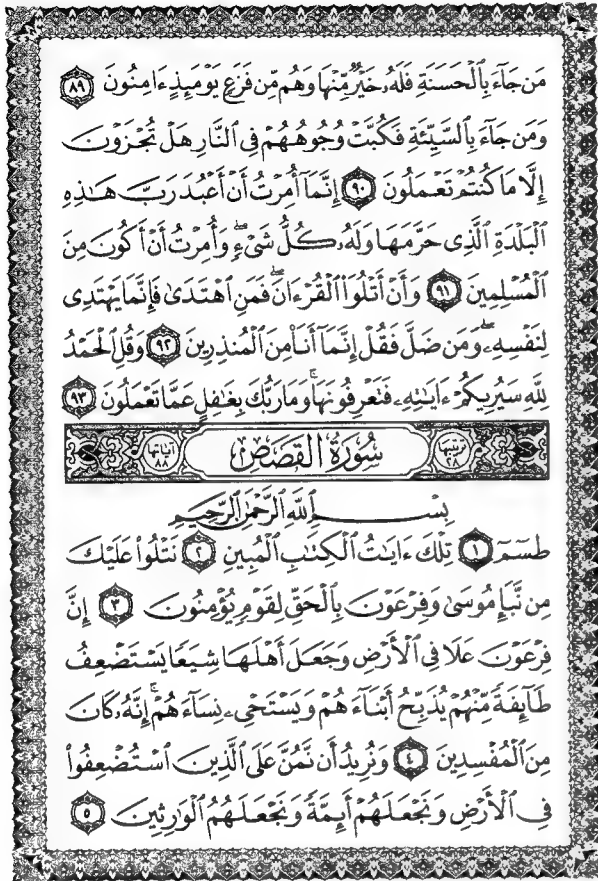 مَن جَآءَ بِٱلۡحَسَنَةِ فَلَهُۥ خَيۡرٞ مِّنۡهَا وَهُم مِّن فَزَعٖ يَوۡمَئِذٍ ءَامِنُونَ ٨٩
وَمَن جَآءَ بِٱلسَّيِّئَةِ فَكُبَّتۡ وُجُوهُهُمۡ فِي ٱلنَّارِ هَلۡ تُجۡزَوۡنَ
إِلَّا مَا كُنتُمۡ تَعۡمَلُونَ ٩٠ إِنَّمَآ أُمِرۡتُ أَنۡ أَعۡبُدَ رَبَّ هَٰذِهِ
ٱلۡبَلۡدَةِ ٱلَّذِي حَرَّمَهَا وَلَهُۥ كُلُّ شَيۡءٖۖ وَأُمِرۡتُ أَنۡ أَكُونَ مِنَ
ٱلۡمُسۡلِمِينَ ٩١ وَأَنۡ أَتۡلُوَاْ ٱلۡقُرۡءَانَۖ فَمَنِ ٱهۡتَدَىٰ فَإِنَّمَا يَهۡتَدِي
لِنَفۡسِهِۦۖ وَمَن ضَلَّ فَقُلۡ إِنَّمَآ أَنَا۠ مِنَ ٱلۡمُنذِرِينَ ٩٢ وَقُلِ ٱلۡحَمۡدُ
لِلَّهِ سَيُرِيكُمۡ ءَايَٰتِهِۦ فَتَعۡرِفُونَهَاۚ وَمَا رَبُّكَ بِغَٰفِلٍ عَمَّا تَعۡمَلُونَ ٩٣
ترتيبها ٢٨ سُورَةُ القَصَصِ آياتها ٨٨
بِسۡمِ ٱللَّهِ ٱلرَّحۡمَٰنِ ٱلرَّحِيمِ
طسٓمٓ ١ تِلۡكَ ءَايَٰتُ ٱلۡكِتَٰبِ ٱلۡمُبِينِ ٢ نَتۡلُواْ عَلَيۡكَ
مِن نَّبَإِ مُوسَىٰ وَفِرۡعَوۡنَ بِٱلۡحَقِّ لِقَوۡمٖ يُؤۡمِنُونَ ٣ إِنَّ
فِرۡعَوۡنَ عَلَا فِي ٱلۡأَرۡضِ وَجَعَلَ أَهۡلَهَا شِيَعٗا يَسۡتَضۡعِفُ
طَآئِفَةٗ مِّنۡهُمۡ يُذَبِّحُ أَبۡنَآءَهُمۡ وَيَسۡتَحۡيِۦ نِسَآءَهُمۡۚ إِنَّهُۥ كَانَ
مِنَ ٱلۡمُفۡسِدِينَ ٤ وَنُرِيدُ أَن نَّمُنَّ عَلَى ٱلَّذِينَ ٱسۡتُضۡعِفُواْ
فِي ٱلۡأَرۡضِ وَنَجۡعَلَهُمۡ أَئِمَّةٗ وَنَجۡعَلَهُمُ ٱلۡوَٰرِثِينَ ٥